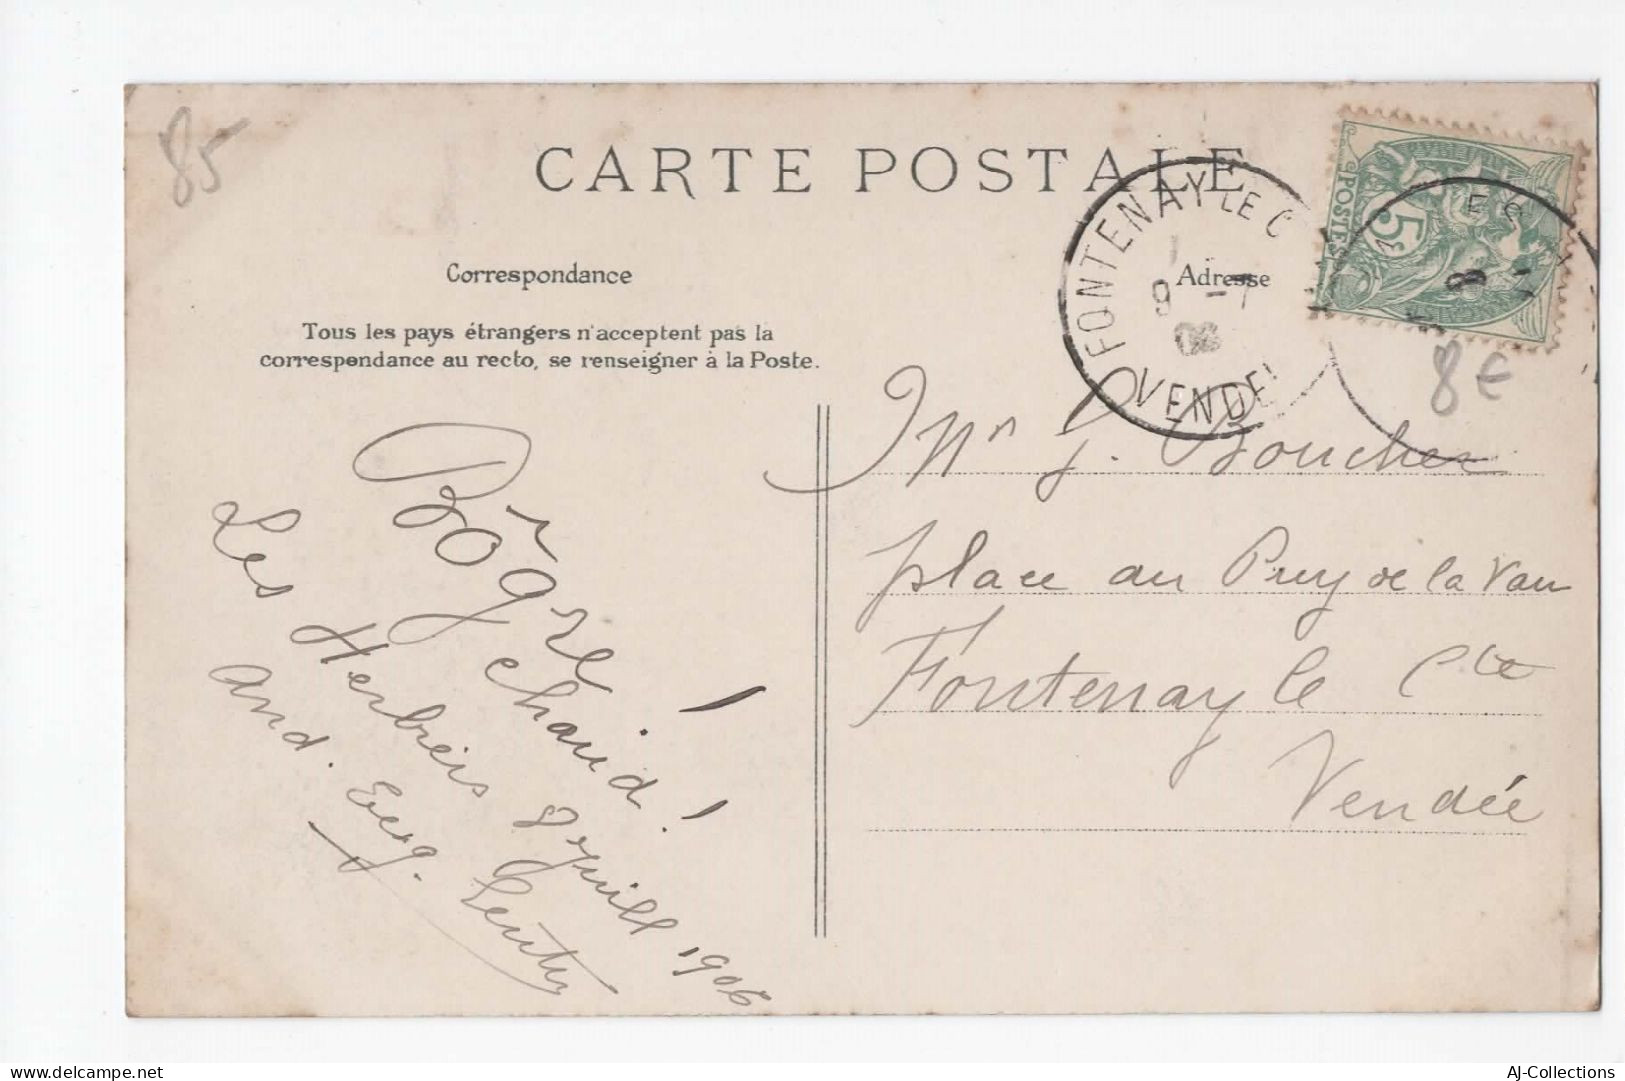 85
CARTE POSTALE
FONTENAY LE C
9 -7
06
VENDEE
POSTES
5
8
8 €
Correspondance
Adresse
Tous les pays étrangers n'acceptent pas la
correspondance au recto, se renseigner à la Poste.
Bôgre!
chaud!
Les Herbiers 8 juill 1906
And. Eug.
Mr J. Boucher
place du Puy de la Vau
Fontenay le Cte
Vendée
delcampe.net
AJ-Collections